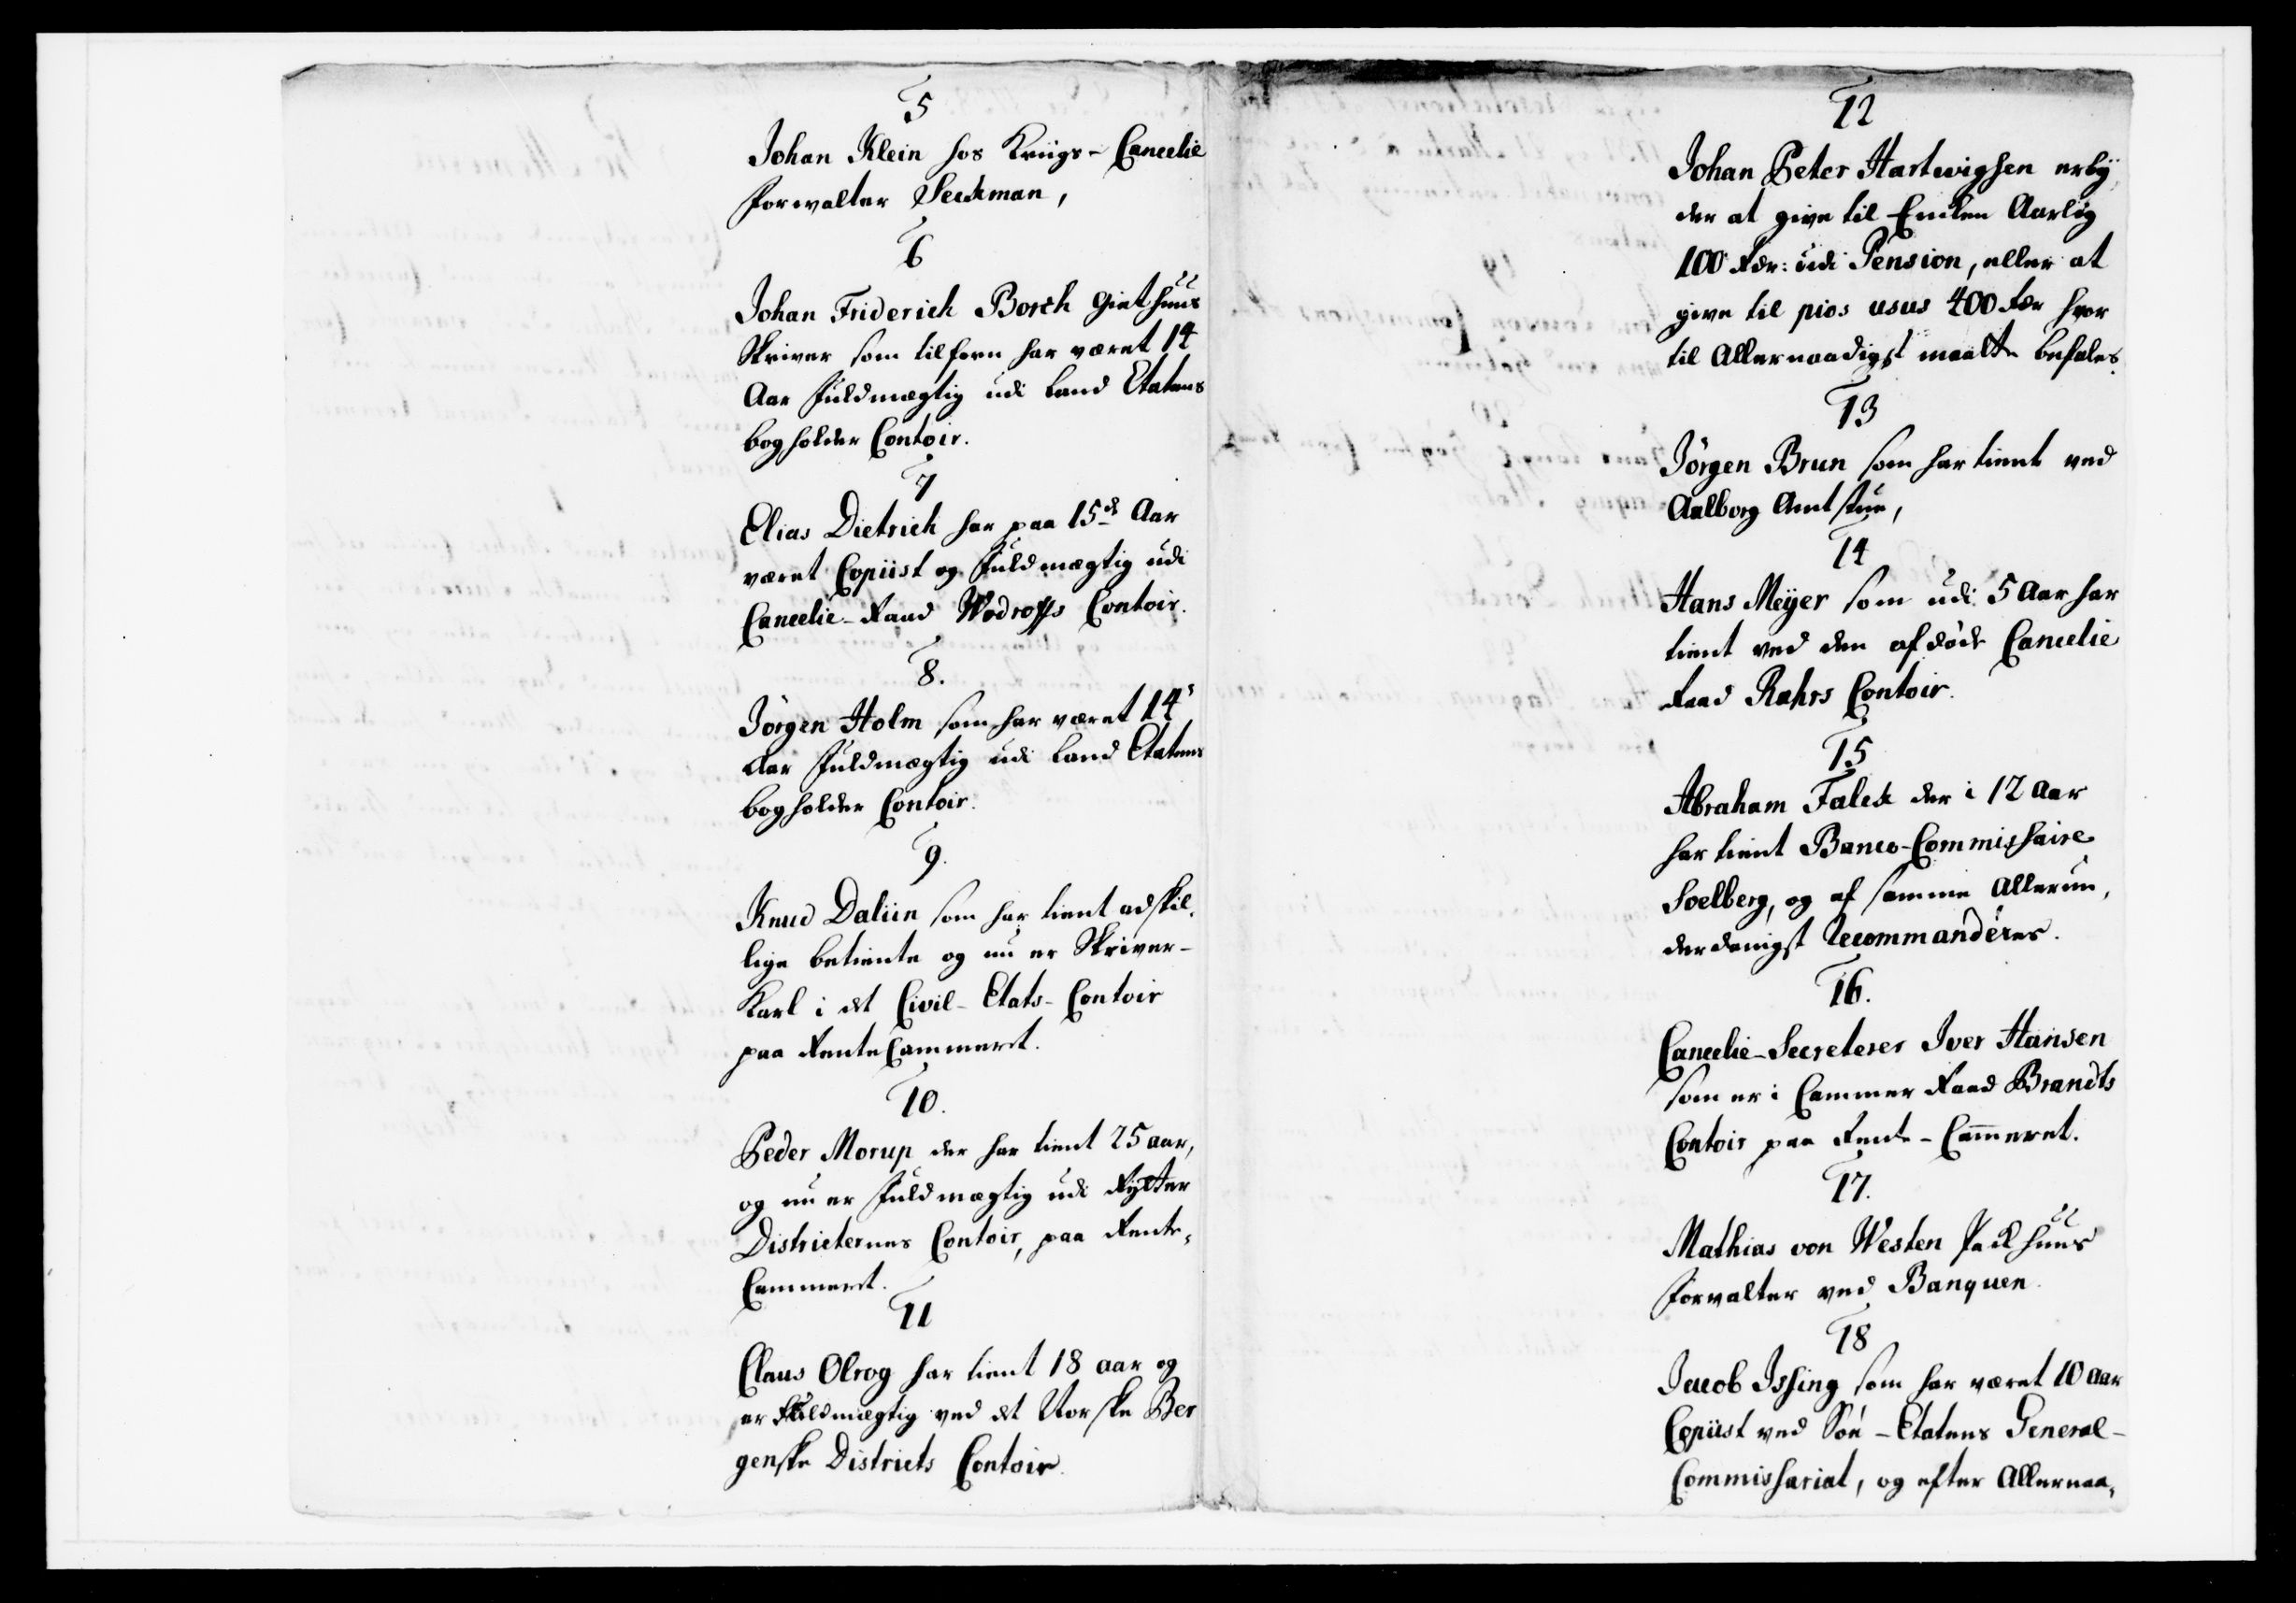 5
Johan Klein hos Kriigs-Cancelie
forvalter Seckman,
6
Johan Friderich Borch Giethuus
Skriver som tilforn har været 14
Aar Fuldmægtig udi Land Etatens
bogholder Contoir.
7
Elias Dietrich har paa 15de Aar
været Copiist og Fuldmægtig udi
Cancelie-Raad Wodroffs Contoir.
8.
Jörgen Holm som har været 14
Aar Fuldmægtig udi Land Etatens
bogholder Contoir.
9.
Knud Daliin som har tient adskil,
lige betiente og nu er Skriver-
Karl i det Civil-Etats-Contoir
paa RenteCammeret.
10.
Peder Morup der har tient 25 aar,
og nu er Fuldmægtig udi Rÿtter
Districternes Contoir, paa Rente,
Cammeret.
11
Claus Olrog har tient 18 aar og
er Fuldmægtig ved det Norske Ber
genske Districts Contoir.
12
Johan Peter Hartwigsen erbÿ,
der at give til Encken Aarlig
100 Rdr: udi Pension, eller at
give til pios usus 400 Rdr hvor
til Allernaadigst maatte befales.
13
Jörgen Brun som har tient ved
Aalborg Amtstue,
14
Hans Meÿer som udi 5 Aar har
tient ved den afdöde Cancelie
Raad Rahrs Contoir.
15
Abraham Falck der i 12 Aar
har tient Banco-Commissaire
Soelberg, og af samme Allerun,
derdanigst Recommanderes.
16.
Cancelie-Secreterer Iver Hansen
som er i Cammer Raad Brandts
Contoir paa Rente-Cam̄eret.
17.
Mathias von Westen Packhuus
forvalter ved Banquen.
18
Jacob Issing som har været 10 Aar
Copiist ved Söe-Etatens General-
Commissariat, og efter Allernaa,